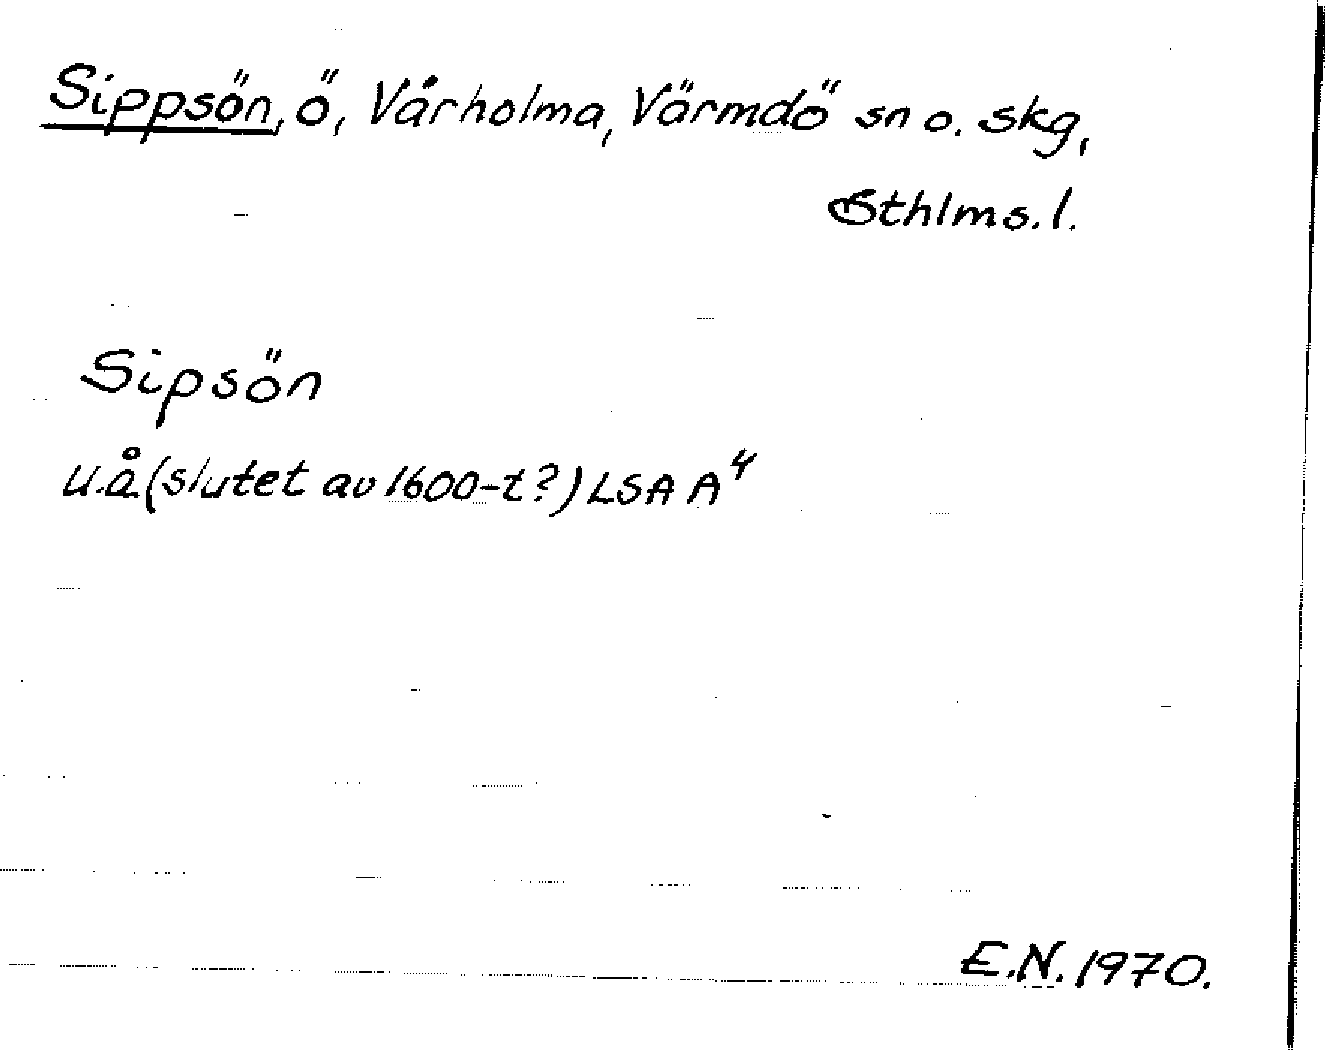 Sippsön, ö, Vårholma, Värmdö sn o. skg,
Sthlms. l.
Sipsön
u.å. (slutet av 1600-t?) LSA A⁴
E.N. 1970.